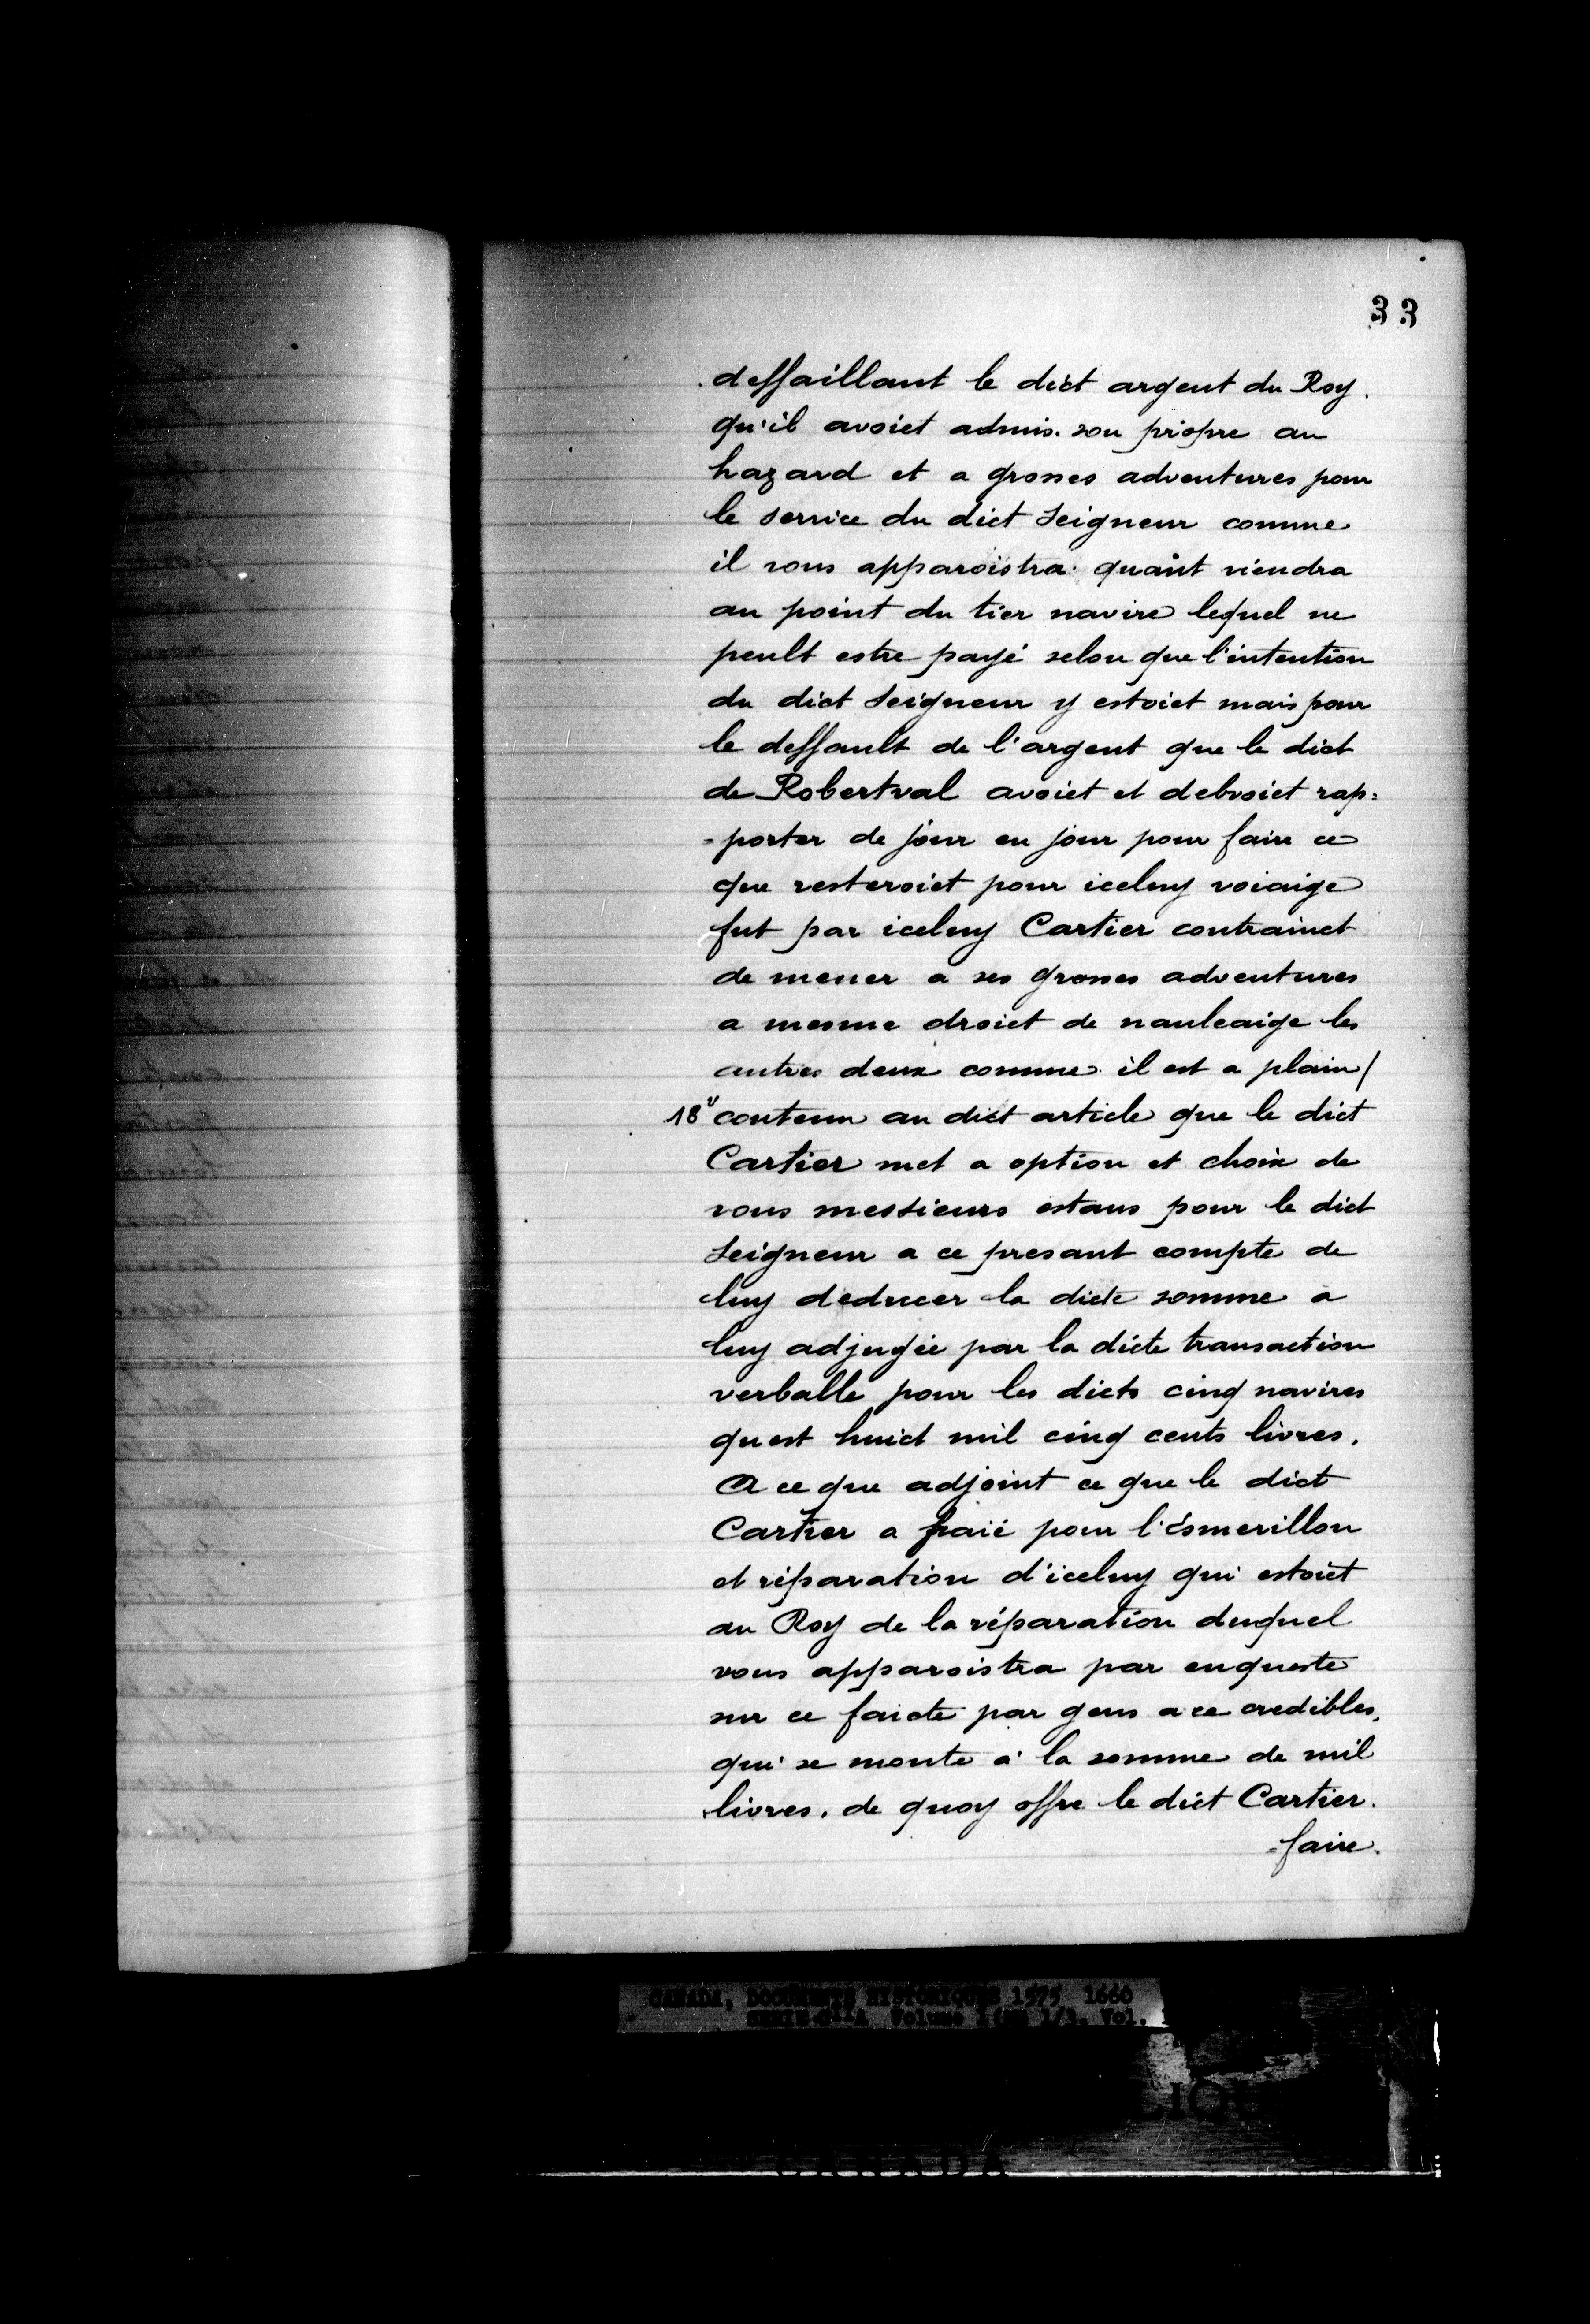 33
deffaillant le dict argent du Roy.
qu'il avoiet admis son propre au
hazard et a grosses adventures pour
le service du dict Seigneur comme
il vous apparoistra quant viendra
au point du tier navire lequel ne
peult estre payé selon que l'intention
du dict Seigneur y estoiet mais pour
le deffault de l'argent que le dict
de Robertval avoiet et debvoiet rap=
=porter de jour en jour pour faire ce
que resteroiet pour iceluy voiaige
fut par iceluy Cartier contrainct
de mener a ses grosses adventures
a mesme droict de nauleaige les
autres deux comme il est a plain/
18v contenu au dict article que le dict
Cartier met a option et choix de
vous messieurs estans pour le dict
Seigneur a ce presant compte de
luy deducer la dicte somme a
luy adjugée par la dicte transaction
verballe pour les dicts cinq navires
quest huict mil cinq cents livres.
A ce que adjoint ce que le dict
Cartier a paié pour l'Esmerillon
et réparation d'iceluy qui estoiet
au Roy de la réparation duquel
vous apparoistra par enqueste
sur ce faicte par gens a ce credibles,
qui se monte à la somme de mil
livres. de quoy offre le dict Cartier.
=faire.
CANADA, DOCUMENTS HISTORIQUES 1575 1660
SERIE C11A Volume 1 1/3, Vol.